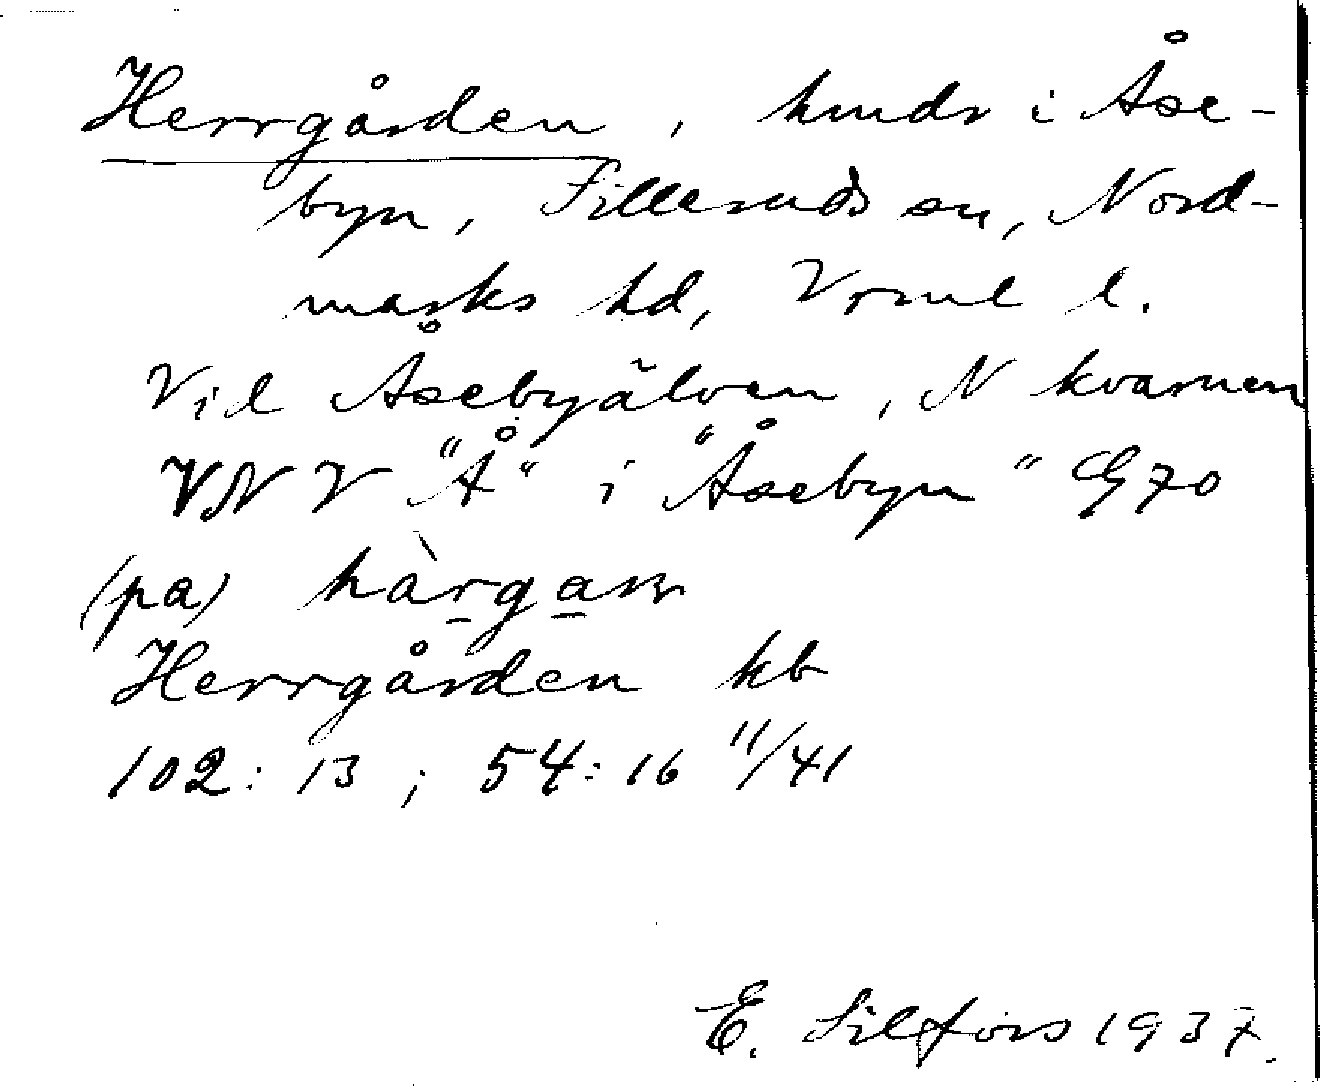 Herrgården, hmdr i Åse-
byn, Silleruds sn, Nord-
marks hd, Vrml l.
Vid Åsebyälven, N kvarnen
VNV "Å" i "Åsebyn" G70
(pa)
Herrgården kb
102:13; 54:16 11/41
E. Silfors 1937.